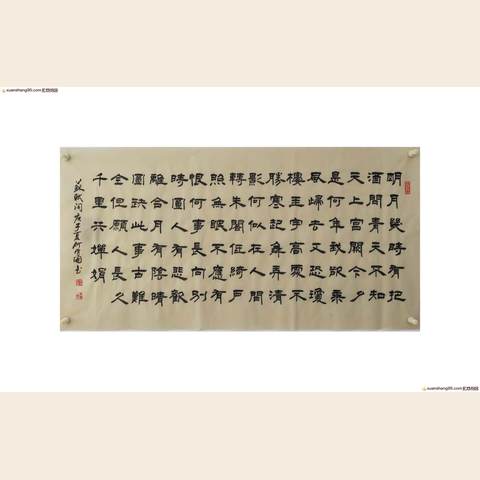 明月幾時有把
酒問青天不知
天上宮闕今夕
是何年我欲乘
風歸去又恐瓊
樓玉宇高處不
勝寒起舞弄清
影何似在人間
轉朱閣低綺戶
照無眠不應有
恨何事長向別
時圓人有悲歡
離合月有陰晴
圓缺此事古難
全但願人長久
千里共嬋娟
蘇軾詞庚子夏何書